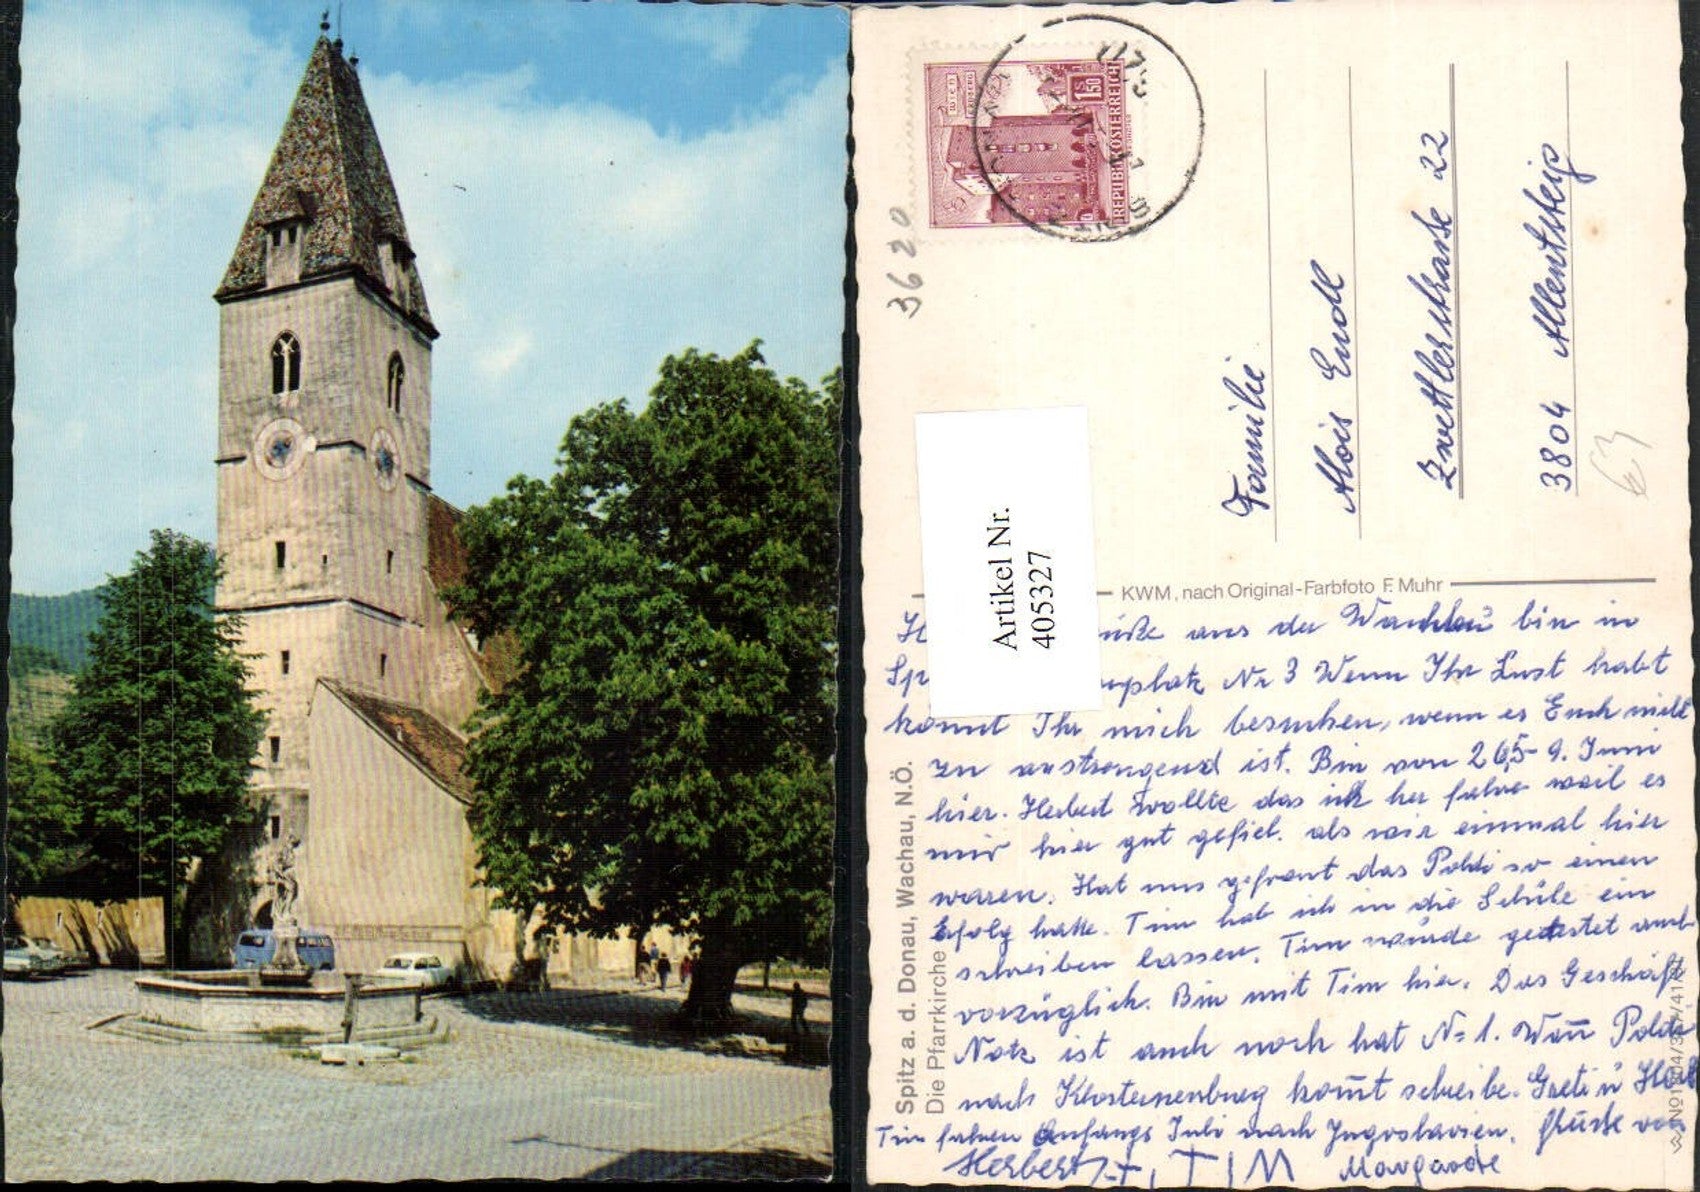 REPUBLIK ÖSTERREICH
1.50
3620
Familie
Alois Endl
Zwettlerstrasse 22
3804 Allentsteig
€3
Artikel Nr.
405327
KWM, nach Original-Farbfoto F. Muhr
Spitz a. d. Donau, Wachau, N.Ö.
Die Pfarrkirche
aus der Wachau bin in
Sp platz Nr 3 Wenn Ihr Lust habt
kommt Ihr mich besuchen, wenn es Euch nicht
zu anstrengend ist. Bin von 26.5-9. Juni
hier. Herbert wollte das ich her fahre weil es
mir hier gut gefiel. als wir einmal hier
waren. Hat uns gefreut das Poldi so einen
Erfolg hatte. Tim hab ich in die Schule ein
schreiben lassen. Tim wurde getestet und
vorzüglich. Bin mit Tim hier. Das Geschäft
Notz ist auch noch hat Nr 1. Wann Poldi
nach Klosterneuburg kommt schreibe. Greti u
Tim fahren Anfangs Juli nach Jugoslavien. Grüße von
Herbert, TIM Margarete